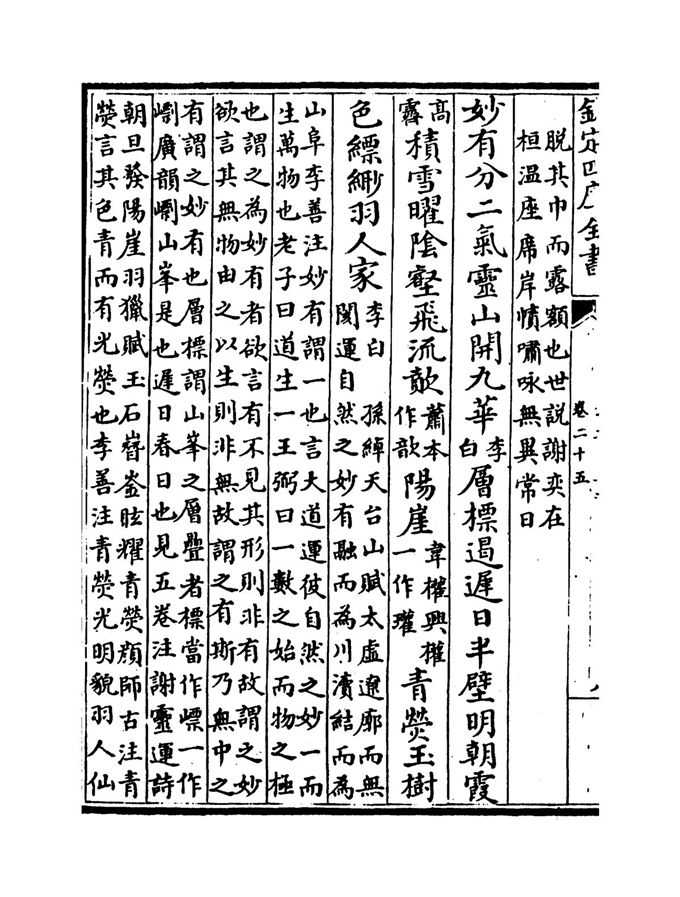 欽定四庫全書
卷二十五
脱其巾而露額也世説謝奕在
桓温座席岸幘嘯咏無異常日
妙有分二氣靈山開九華李白層標遏遲日半壁明朝霞
高霽積雪曜陰壑飛流歕蕭本作歊陽崖韋權輿權一作瓘青熒玉樹
色縹緲羽人家李白
孫綽天台山賦太虚遼廓而無
閡運自然之妙有融而為川瀆結而為
山阜李善注妙有謂一也言大道運彼自然之妙一而
生萬物也老子曰道生一王弼曰一數之始而物之極
也謂之為妙有者欲言有不見其形則非有故謂之妙
欲言其無物由之以生則非無故謂之有斯乃無中之
有謂之妙有也層標謂山峯之層疊者標當作一作
廣韻山峯是也遲日春日也見五卷注謝靈運詩
朝旦發陽崖羽獵賦玉石嶜崟眩耀青熒顔師古注青
熒言其色青而有光熒也李善注青熒光明貌羽人仙